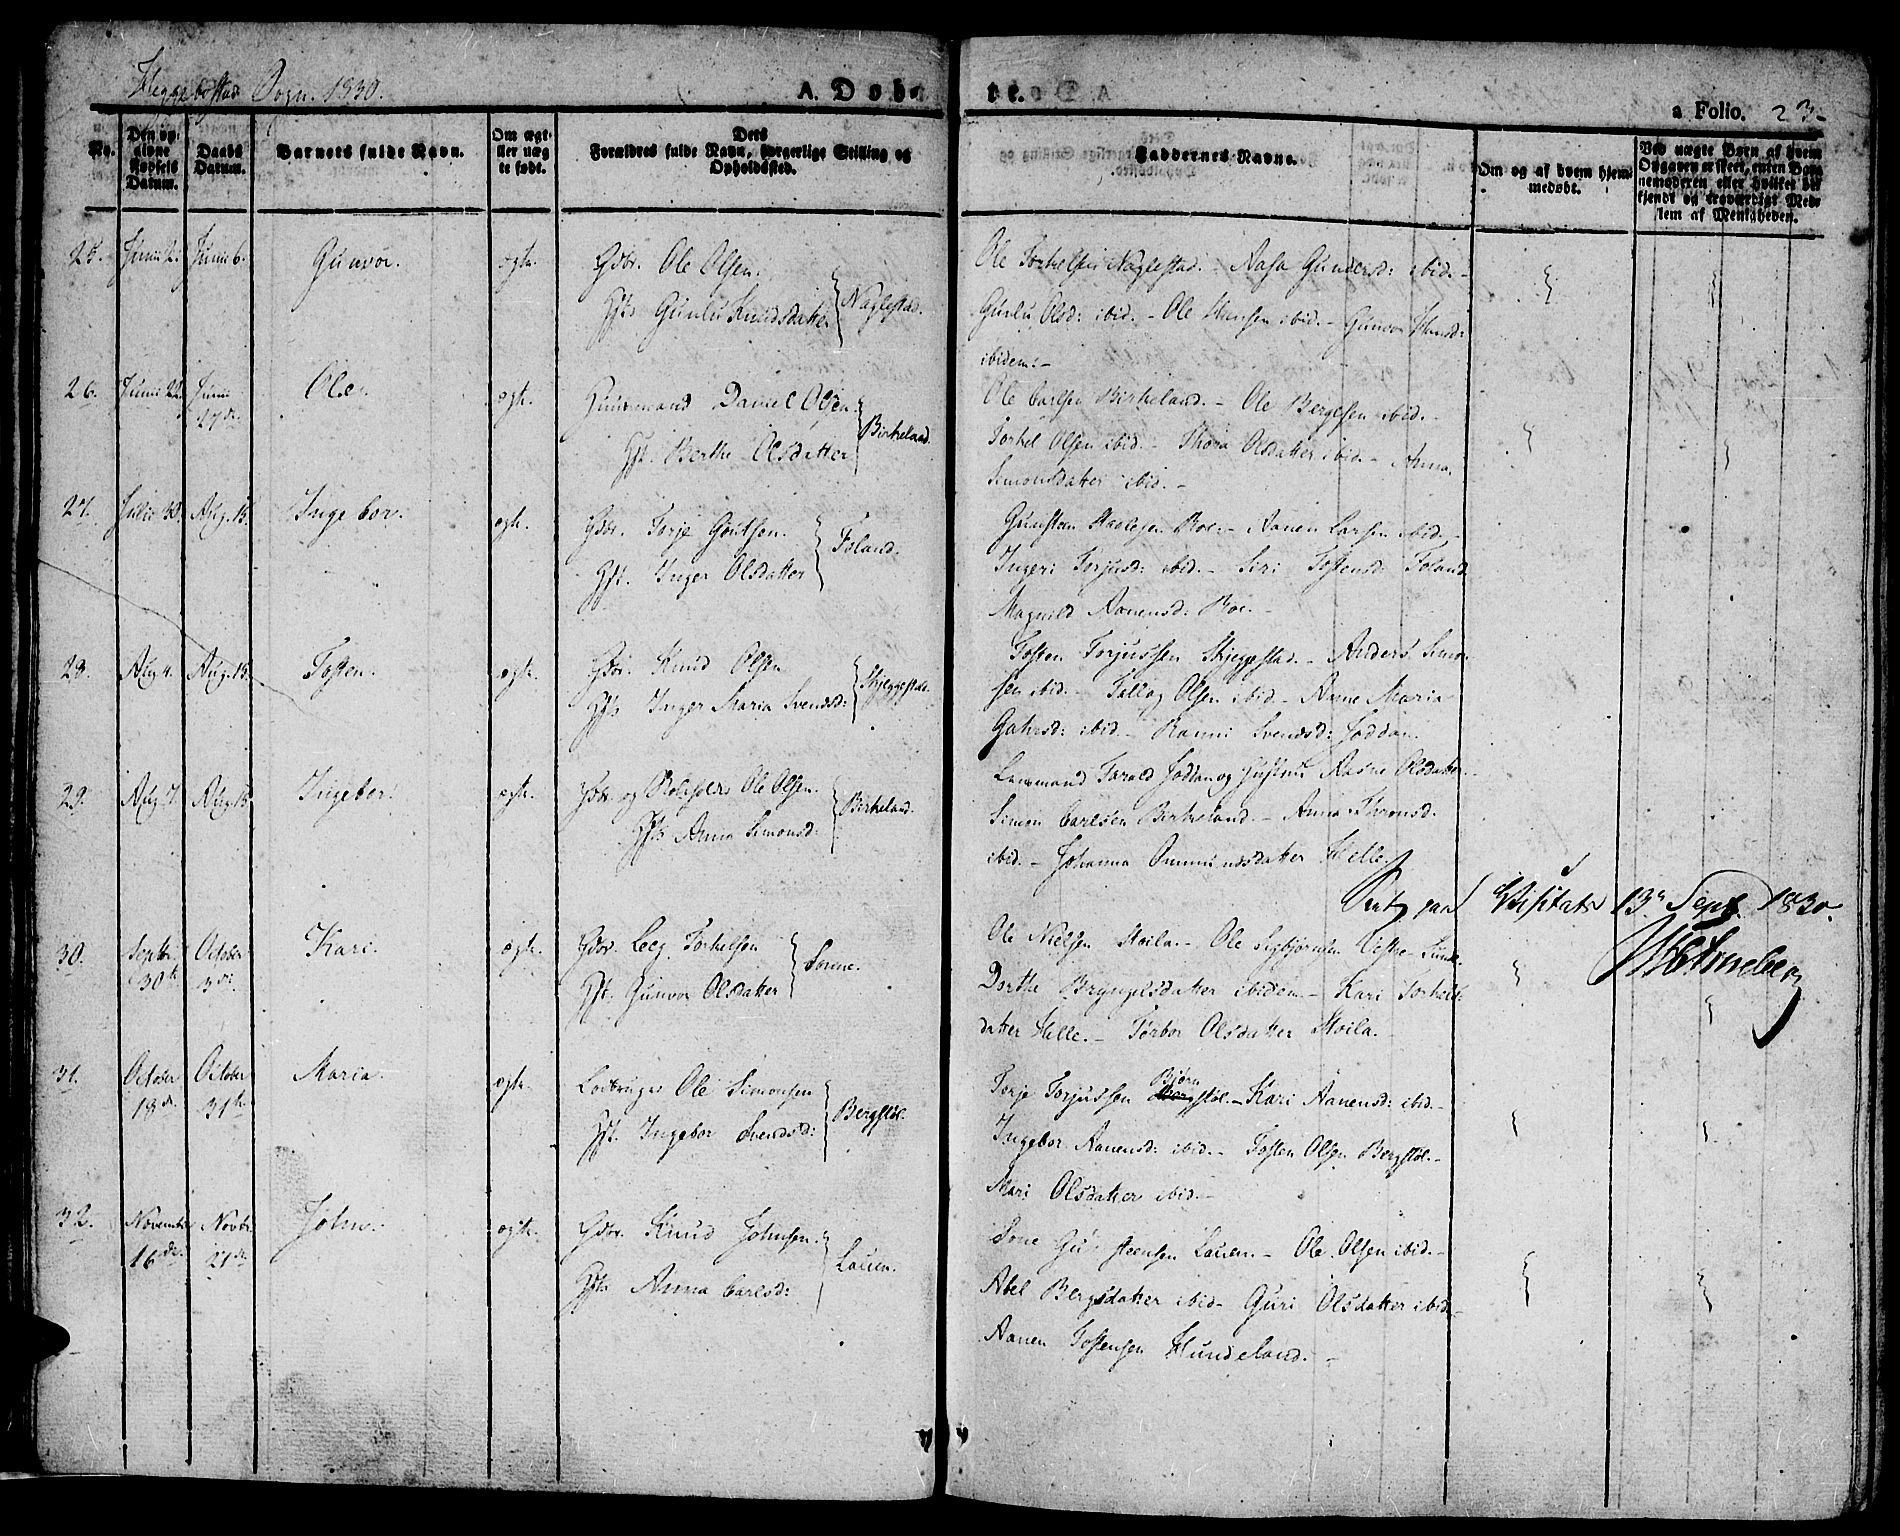 Heggebostad Sogn. 1830.
A. Døb-
te.
a Folio. 23.
No.
Den op-
givne
Fødsels
Datum.
Daabs
Datum.
Barnets fulde Navn.
Om ægt-
eller uæg
te født.
Dets
Forældres fulde Navn, borgerlige Stilling og
Opholdssted.
Faddernes Navne.
Om og af hvem hjem-
medøbt.
Ved uægte Børn af hvem
Opgaven er skeet, enten Bar-
nemoderen eller hvilket be-
kjendt og troværdigt Med-
lem af Menigheden.
25. Junii 2. Junii 6. Gunvor. ægte. Gdbr. Ole Olsen.
Hst. Gunlu Knudsdatter } Naglestad.
Ole Torkelsen Naglestad. - Aasa Gundersd: ibid. -
Gunlu Olsd: ibid. - Ole Hansen ibid. - Gunvor Hansd:
ibidem. -
26. Junii 22. Junii 27de. Ole. ægte. Huusmand Daniel Olsen.
Hst. Berthe Olsdatter } Birkeland.
Ole Carlsen Birkeland. - Ole Bergesen ibid. -
Torkel Olsen ibid. - Thora Olsdatter ibid. - Anna
Simonsdatter ibid. -
27. Julii 30. Aug. 15. Ingebor. ægte. Gdbr. Torje Goutsen.
Hst. Inger Olsdatter } Foland.
Gunsten Roe. - Aanen Larsen ibid. -
Ingeri Torjusd: ibid. - Siri Tostensd: Foland
Magnild Aanensd: Roe. -
28. Aug. 4. Aug. 15. Tosten. ægte. Gdbr. Knud Olsen
Hst. Inger Maria Svendsd: } Skjeggestad.
Tosten Torjussen Skjeggestad. - Anders Simon-
sen ibid. - Tallag Olsen ibid. - Anne Maria
ibid. - Ranni Svendsd: Joddan.
29. Aug. 7. Aug. 15. Ingebor. ægte. Gdbr. og Ole Olsen.
Hst. Anna Simonsd: } Birkeland.
Lensmand Tarald Jodlan og Hustru Aasne Olsdatter. -
Simon Carlsen Birkeland. - Anna Thronsd.
ibid. - Johanna Ommundsdatter Helle.
Visitats 13de Sept. 1830.
30. Septbr. 30te October 3die. Kari. ægte. Gdbr. Leg Torkelsen
Hst. Gunvor Olsdatter }
Ole Nielsen Stoila. - Ole Sigbjørnsen Vestre-Lunde.
Dorthe Bryngelsdatter ibidem. - Kari Torkels-
datter Helle. - Torbor Olsdatter Stoila. -
31. October 18de. October 31te. Maria. ægte. Lodbruger Ole Simonsen
Hst. Ingebor Svendsd: } Bergstøl.
Torje Torjussen Bjørn støl. - Kari Aanensd: ibid. -
Ingebor Aanensd: ibid. - Tosten Olsen Bergstøl. -
Mari Olsdatter ibid. -
32. November 16de. Novbr. 21de. John. ægte. Gdbr. Knud Johnsen.
Hst. Anna Carlsd: } Lauen.
Tone Gunsteensen Lauen. - Ole Olsen ibid. -
Abel Bergsdatter ibid - Guri Olsdatter ibid. -
Aanen Tostensen Hundeland. -